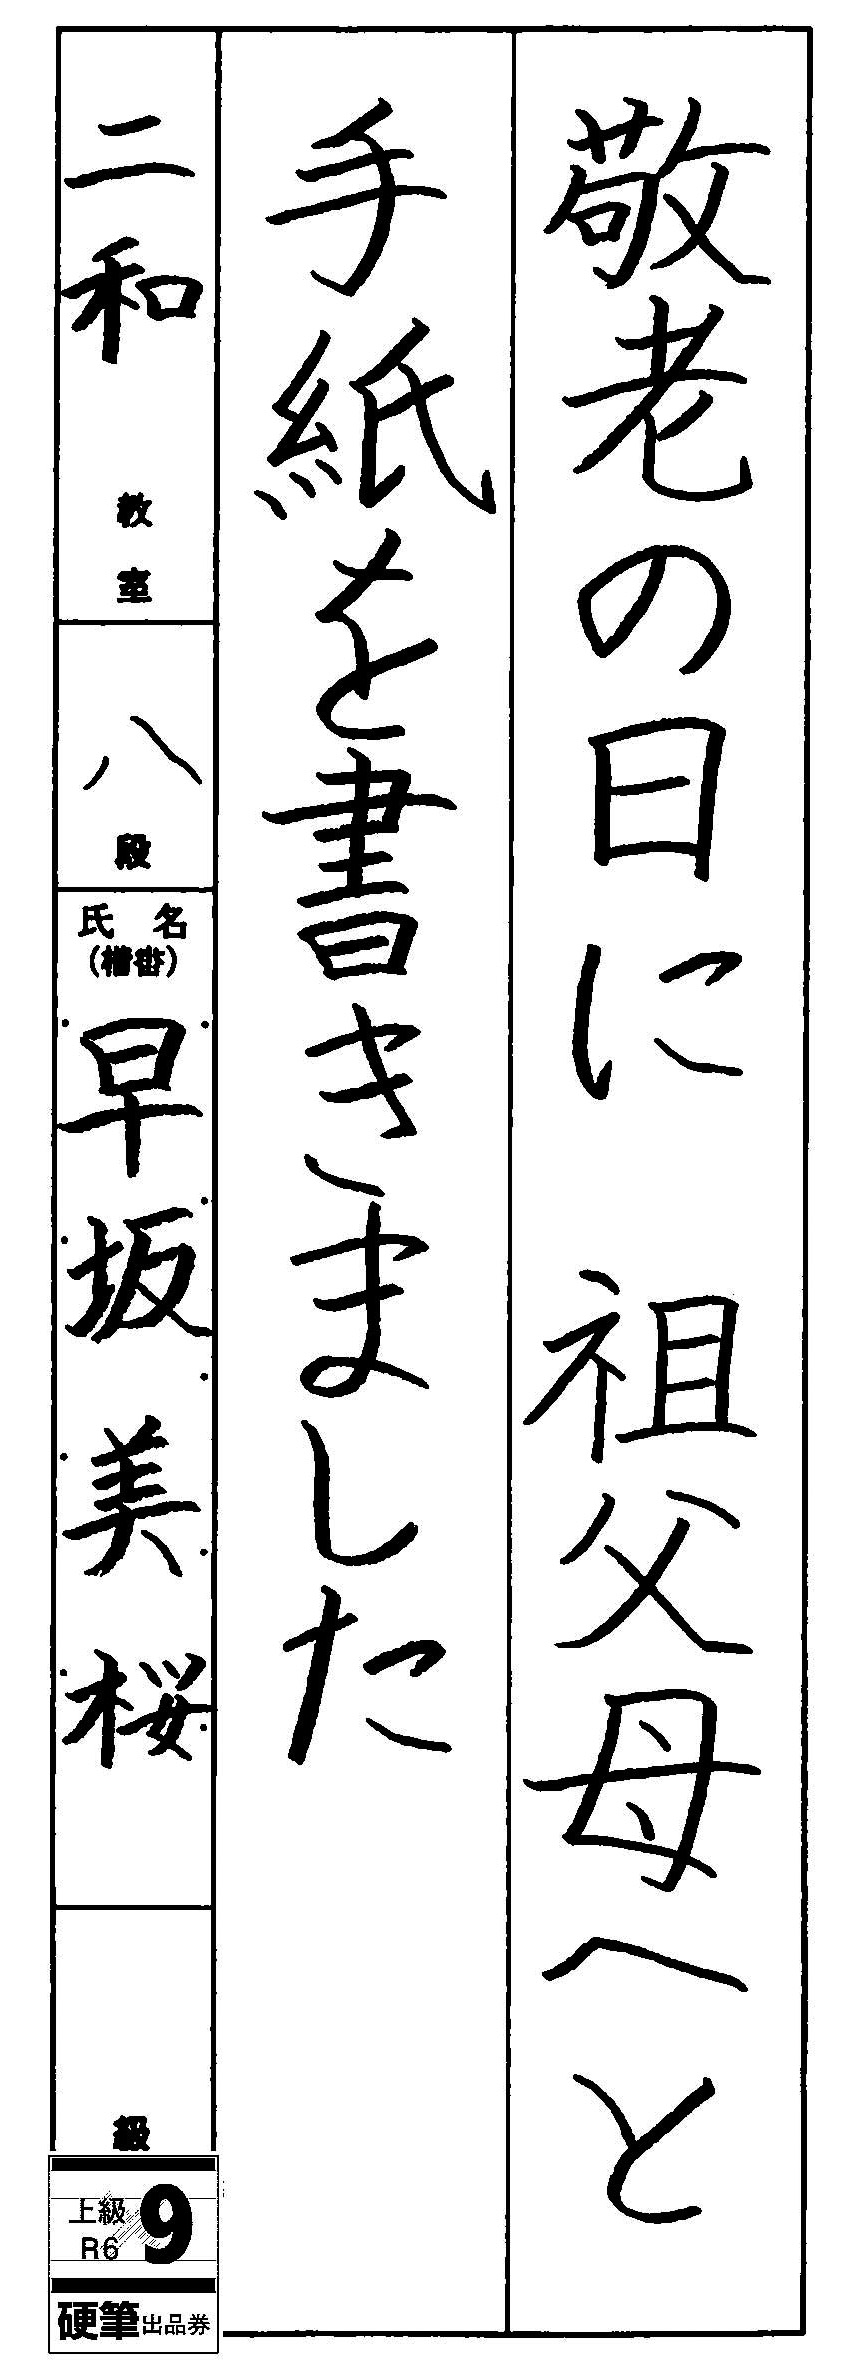 敬老の日に　祖父母へと
手紙を書きました
二和　教室
八　段
氏　名
(楷書)
早坂美桜
級
上級
R6
9
硬筆出品券